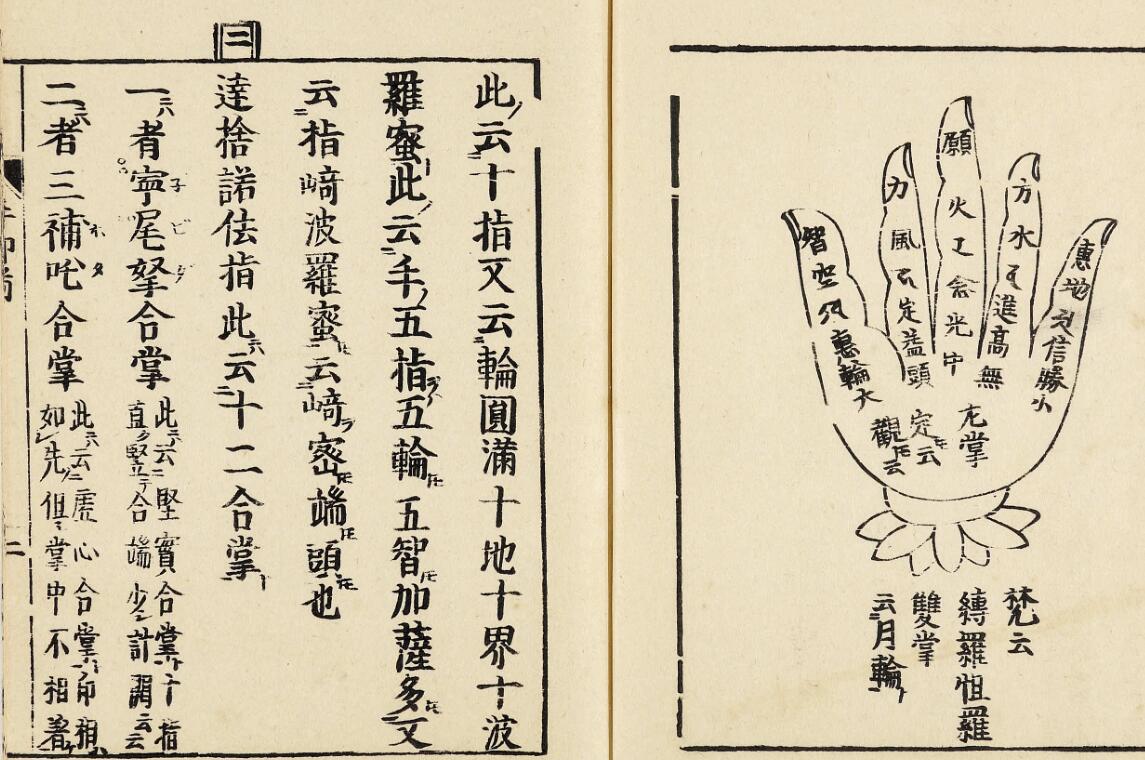 惠地信勝
方水進高無
願火念光中
力風定蓋頭
智空惠輪大
掌
定云
觀云
梵云
縛羅怛羅
雙掌
云月輪
此云十指又云輪圓滿十地十界十波
羅蜜此云千五指五輪五智加薩多文
云指﨑波羅蜜云﨑密端頭也
三
達捨諾佉指此云十二合掌
一者寧尾拏合掌
此云堅實合掌十指
直竪合端少計開云云
二者三補吒合掌
此云虛心合掌印相
如先但掌中不相著
二